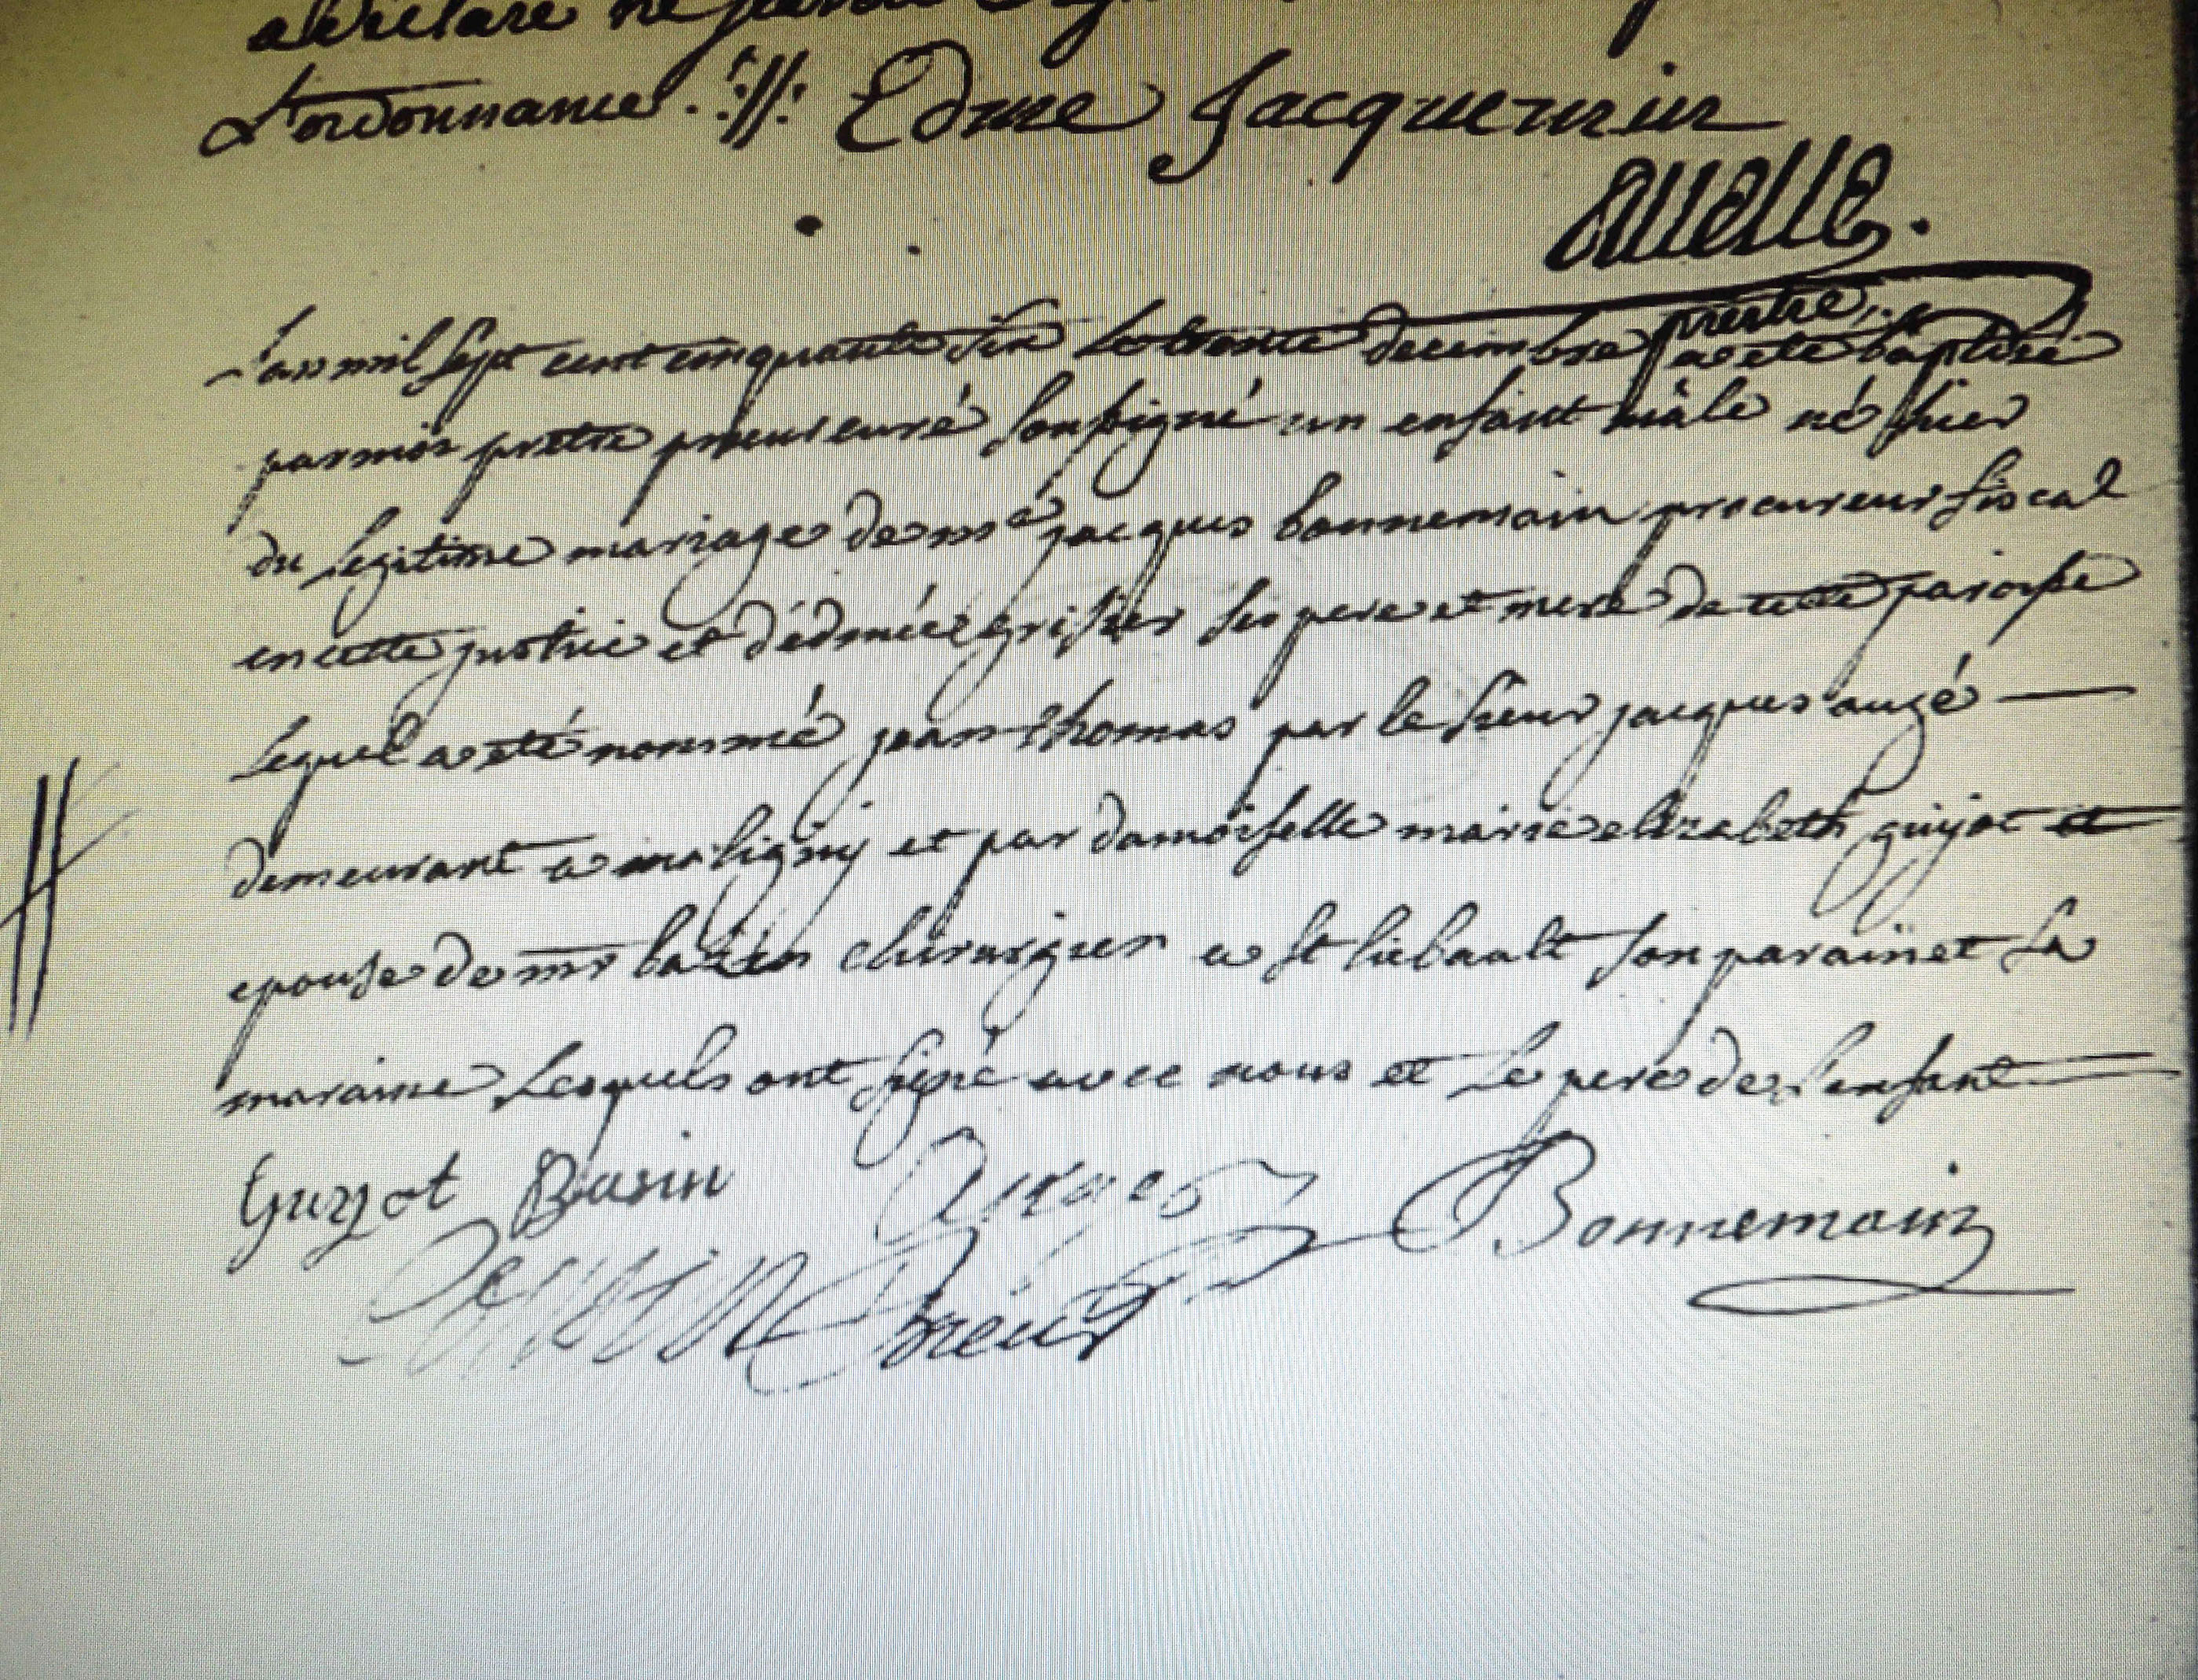 a declaré ne
L'ordonnance. Edme Jacquemin
prestre.
L'an mil sept cent cinquante six le trente decembre a eté baptisé
par moi prêtre prieur curé soussigné un enfant mâle né hier
du legitime mariage de mre jacques bonnemain procureur fiscal
en cette justice et d'édmée grisier ses pere et mere de cette paroisse
lequel a eté nommé jean thomas par le sieur jacques augé
demeurant a maligny et par damoiselle marie elizabeth guijot
epouse de mr bazin chirurgien a st liebault son parain et sa
maraine lesquels ont signé avec nous et le pere de l'enfant
Guyot Basin Bonnemain
prieur